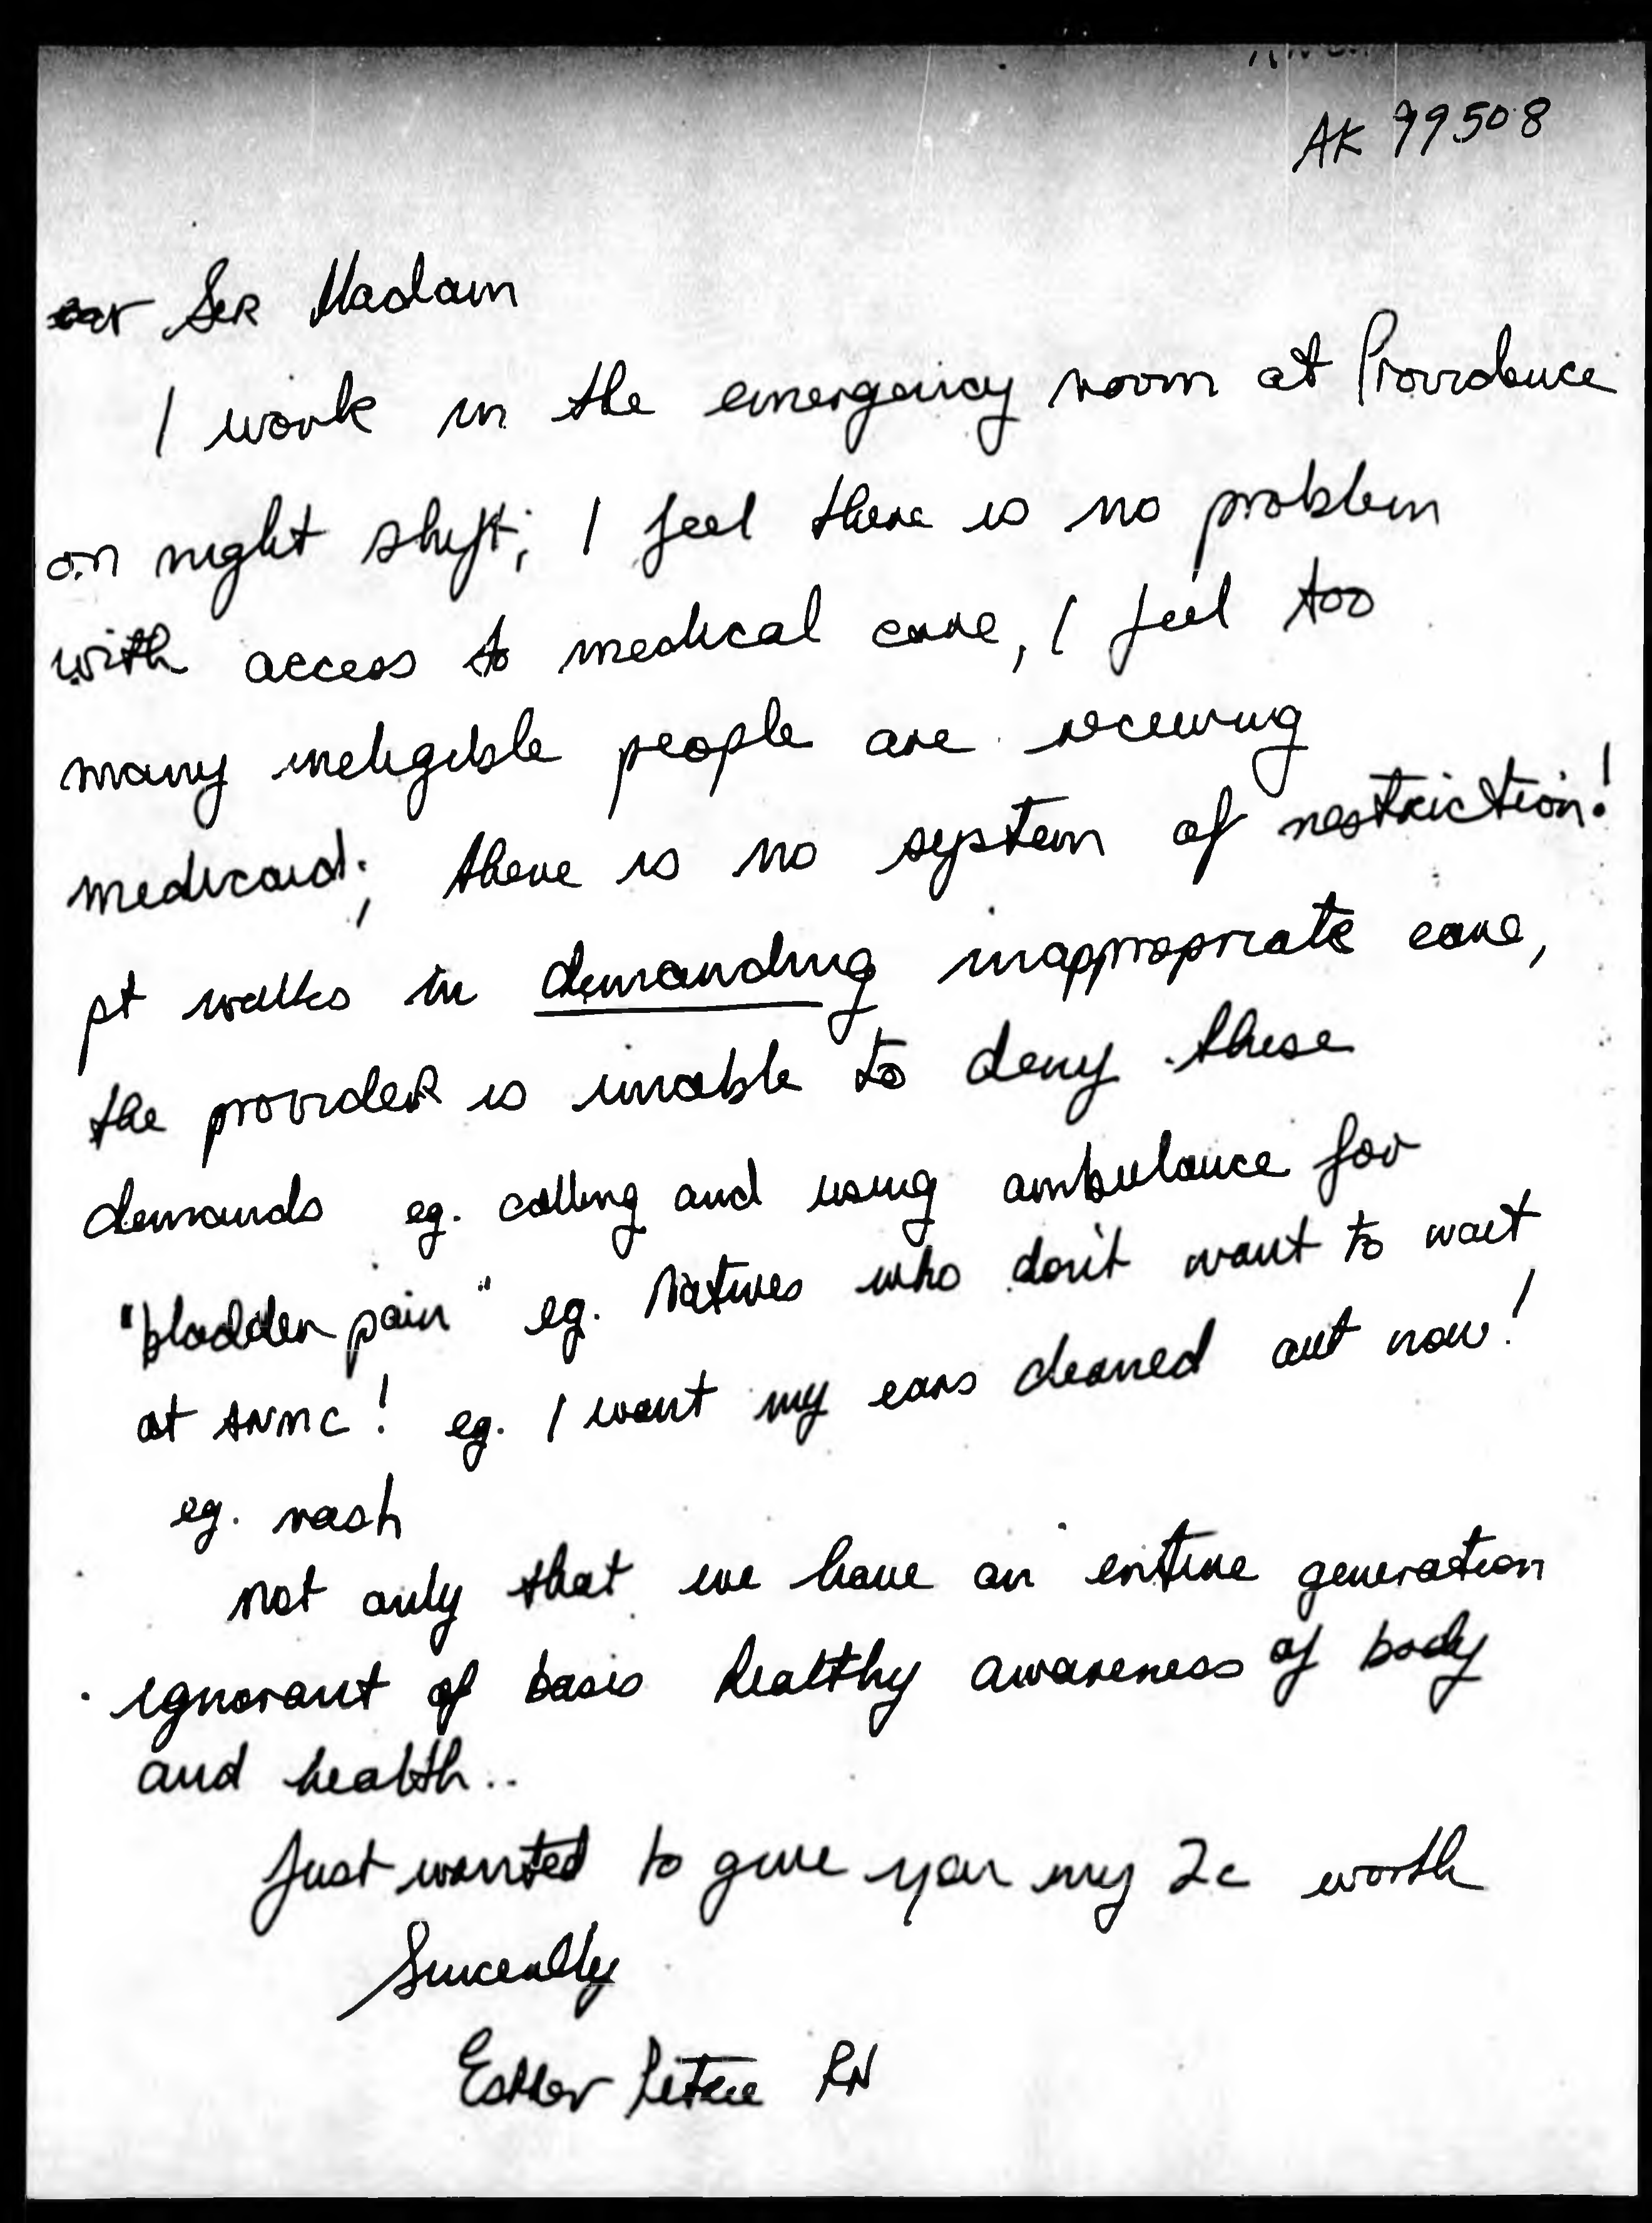 AK 99508
Sir Madam
I work in the emergency room at Providence
on night shift; I feel there is no problem
with access to medical care, I feel too
many ineligible people are receiving
medicaid; there is no system of restriction!
pt walks in demanding inappropriate care,
the provider is unable to deny these
demands eg. calling and using ambulance for
"bladder pain" eg. Natives who don't want to wait
at ANMC! eg. I want my ears cleaned out now!
eg. rash
not only that we have an entire generation
ignorant of basis healthy awareness of body
and health..
Just wanted to give you my 2c worth
Sincerelly
Esther RN